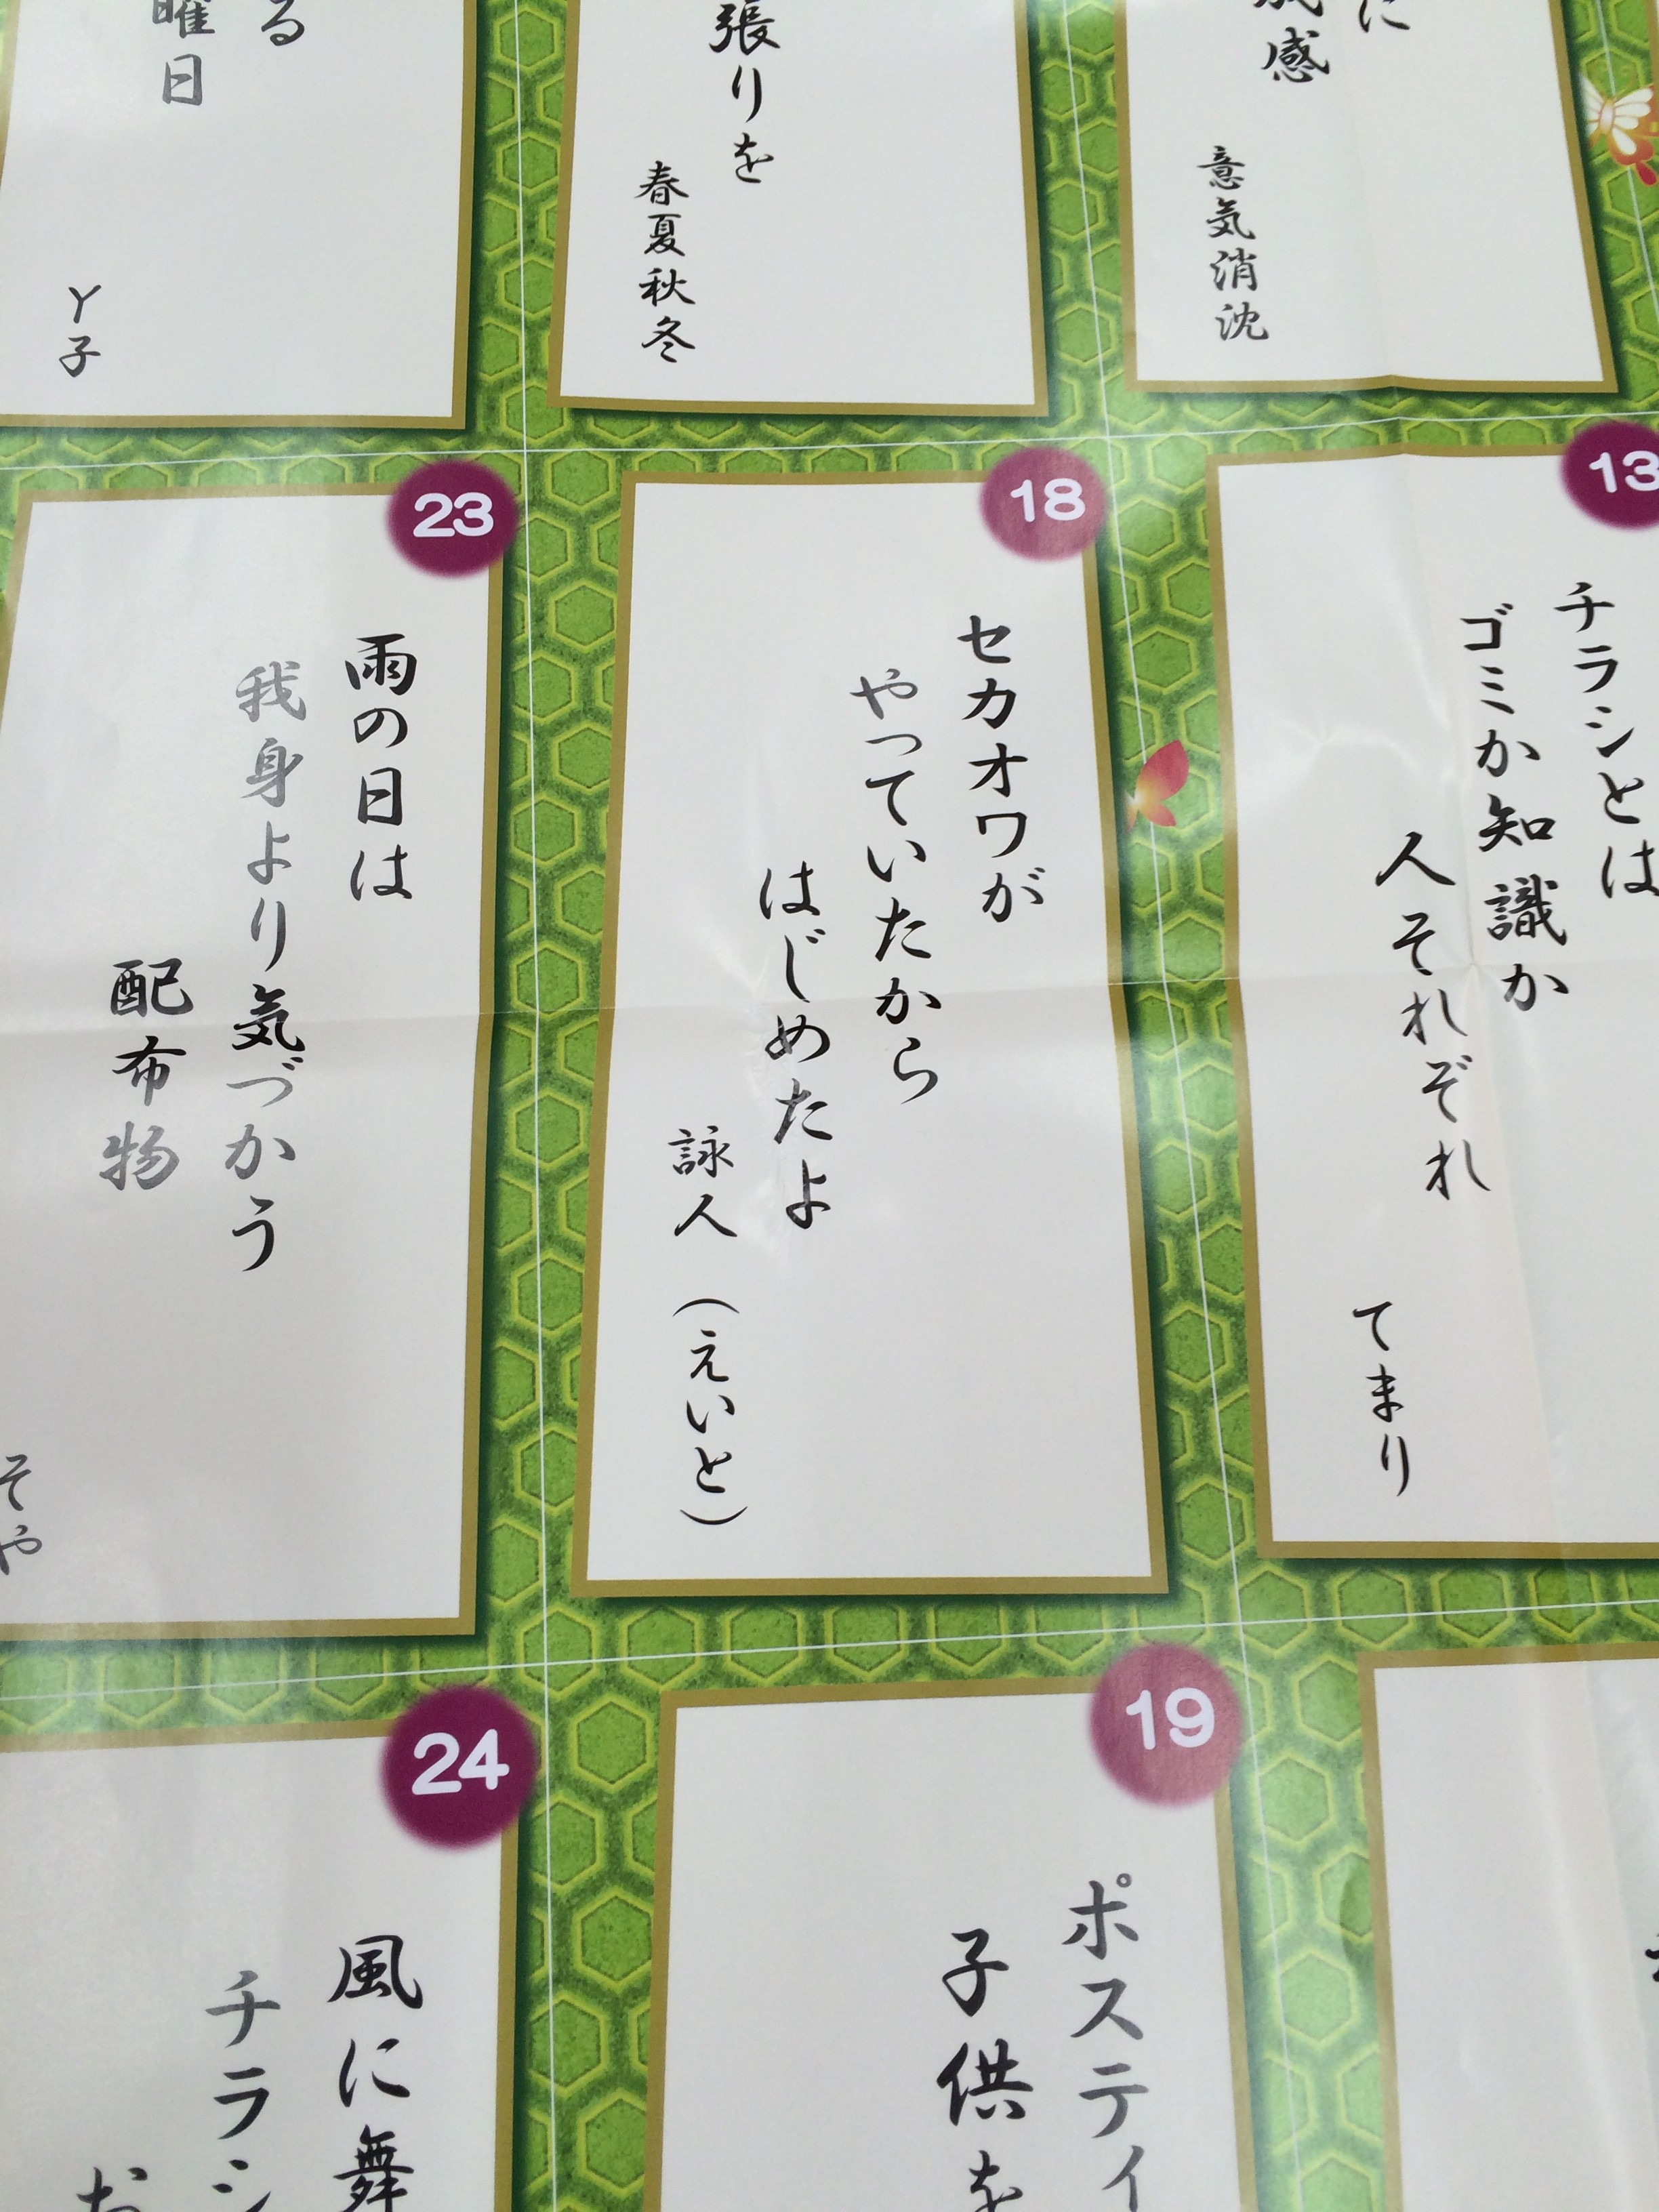 に
感
意気消沈
張りを
春夏秋冬
る
曜日
Y子
13
チラシとは
ゴミか知識か
人それぞれ
てまり
18
セカオワが
やっていたから
はじめたよ
詠人(えいと)
23
雨の日は
我身より気づかう
配布物
そや
19
ポスティ
子供を
24
風に舞
チラシ
お